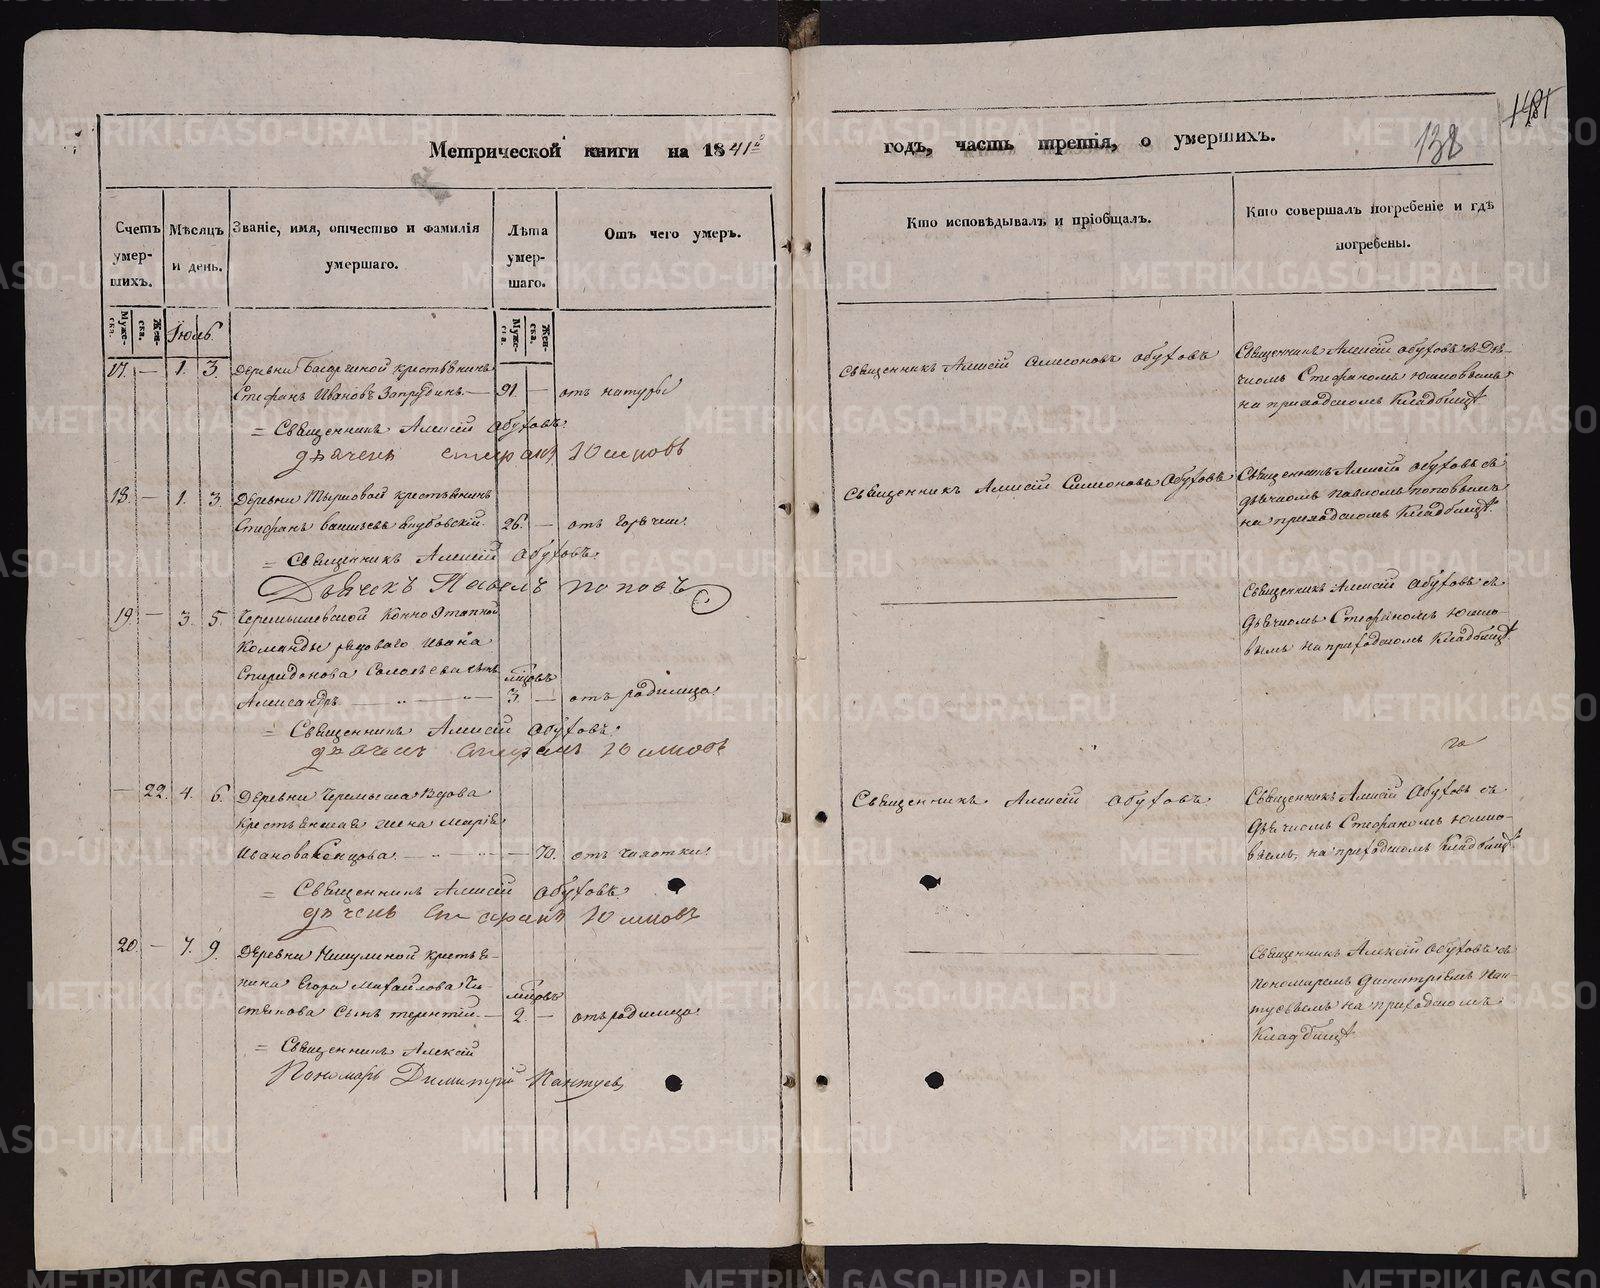 Метрической книги на 1841й
годъ, часть третія, о умершихъ.
138
1481
Счетъ умер-шихъ.
Муже-ска.
Жен-ска.
Мѣсяцъ и день.
Званіе, имя, отчество и фамилія умершаго.
Лѣта умер-шаго.
Муже-ска.
Жен-ска.
Отъ чего умеръ.
Кто исповѣдывалъ и пріобщалъ.
Кто совершалъ погребеніе и гдѣ погребены.
Іюль
17. — 1. 3. Деревни крестьянинъ
Стефанъ Ивановъ Запрудинъ — 91. — отъ натуры
= Священникъ Алексій Обуховъ.
дьячекъ Стефанъ Юшковъ
Священникъ Алексій Симеоновъ Обуховъ
Священникъ Алексій Обуховъ съ Дья-
чкомъ Стефаномъ Юшковымъ
на приходскомъ Кладбищѣ.
18. — 1. 3. Деревни крестьянинъ
Стефанъ 26. — отъ горячки.
= Священникъ Алексій Обуховъ.
Дьячекъ Павелъ Поповъ
Священникъ Алексій Симеоновъ Обуховъ
Священникъ Алексій Обуховъ съ
дьячкомъ Павломъ Поповымъ
на приходскомъ Кладбищѣ.
19. — 3. 5. Черемышевской Конно Этапной
Команды рядоваго Ивана
Спиридонова Соловьева сынъ мѣсяцовъ
Александръ — „ — „ — 3. — отъ родимца.
= Священникъ Алексій Обуховъ.
дьячекъ Стефанъ Юшковъ
Священникъ Алексій Обуховъ съ
дьячкомъ Стефаномъ Юшко-
вымъ на приходскомъ Кладбищѣ.
— 22. 4. 6. Деревни Черемыша вдова
крестьянская жена Марія
Иванова — 70. отъ чахотки.
= Священникъ Алексій Обуховъ.
дьячекъ Стефанъ Юшковъ
Священникъ Алексій Обуховъ
Священникъ Алексій Обуховъ съ
дьячкомъ Стефаномъ Юшко-
вымъ, на приходскомъ Кладбищѣ.
20. — 7. 9. Деревни крестья-
нина Егора Михайлова Чи-
стякова сынъ Терентій. — мѣсяцовъ 2. — отъ родимца
= Священникъ Алексій
Пономарь Димитрій Пантуев
Священникъ Алексій Обуховъ съ
пономаремъ Димитріемъ Пан-
туевымъ на приходскомъ
Кладбищѣ.
METRIKI.GASO-URAL.RU